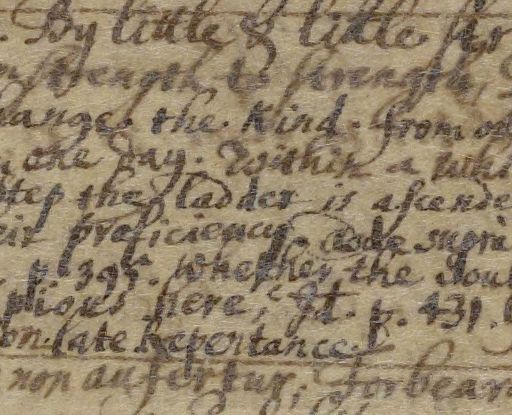 . By little & little
strength to strength,
hange the Kind. from
one day. Within a whi
step the ladder is ascende
eir proficiency
p. 395. whether the Soul
here, Id. p. 431.
on. late Repentance.
non aufertur, forbear